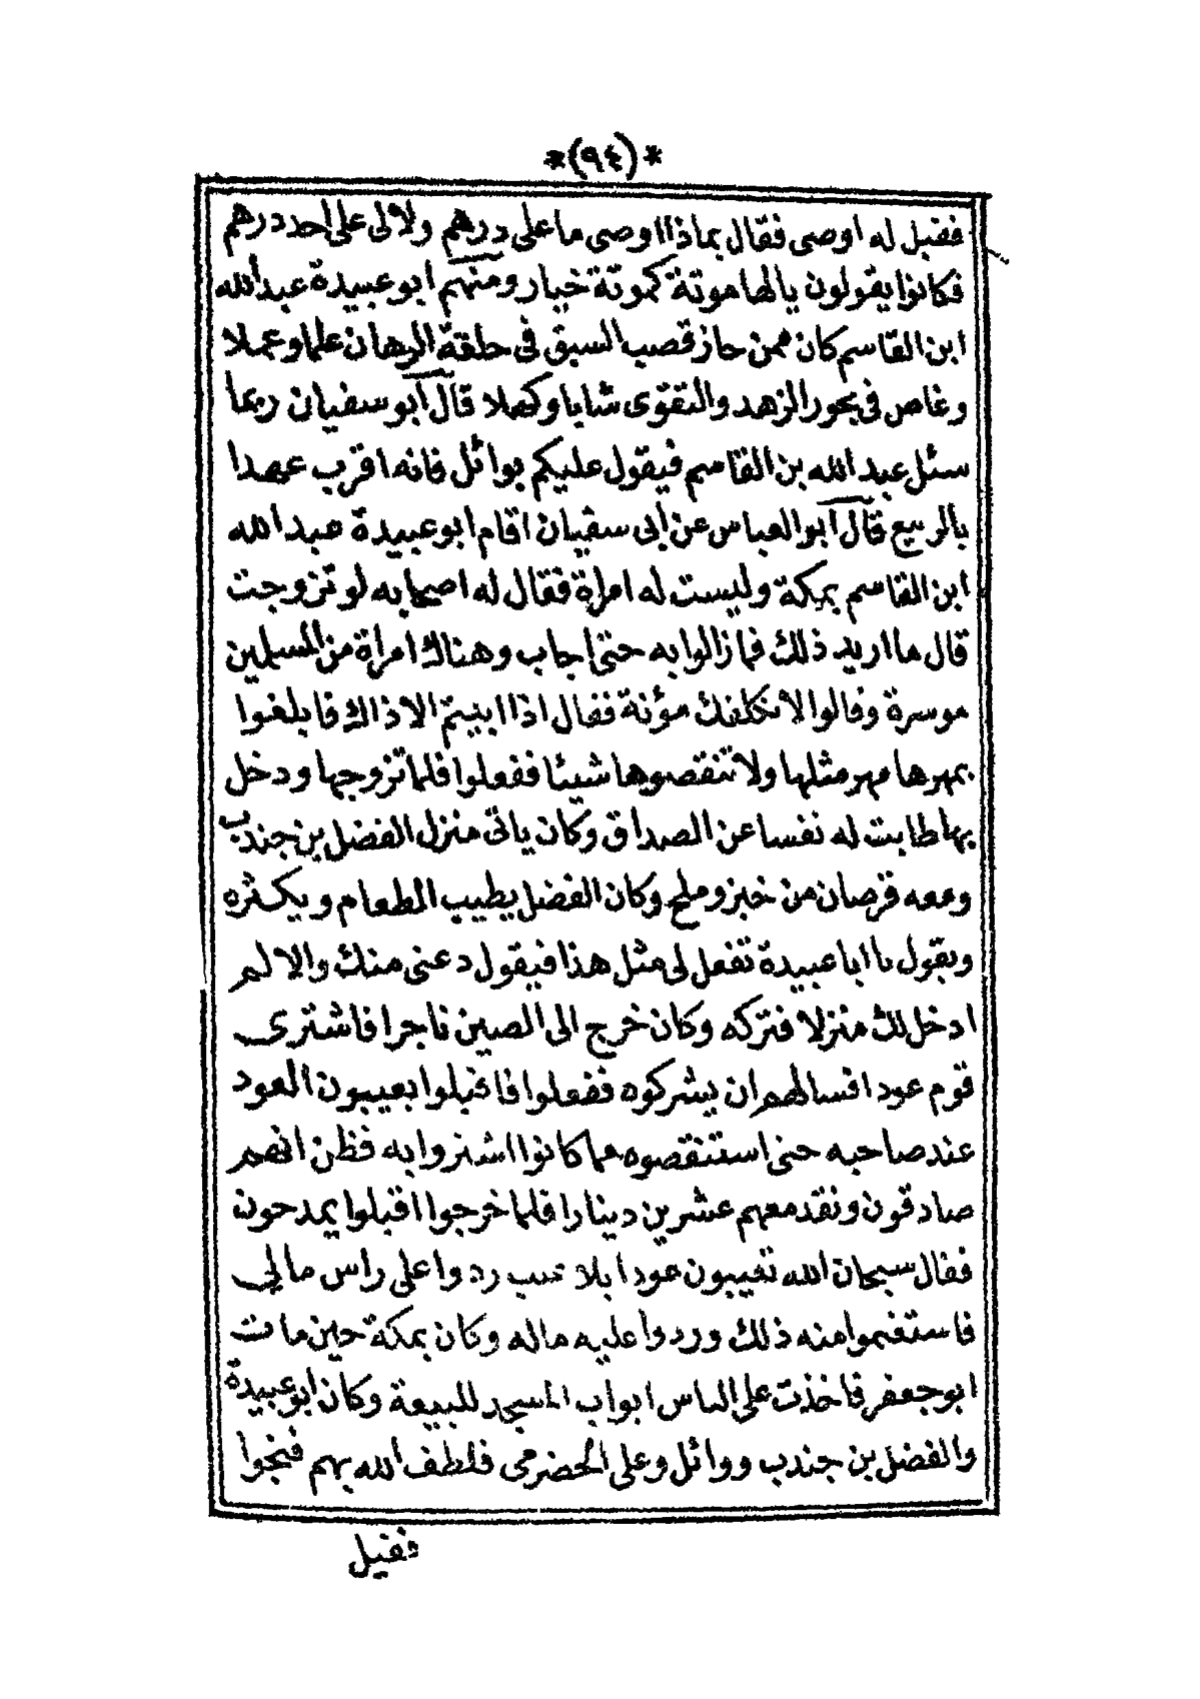 *(٩٤)*
فقيل له اوصى فقال بماذا اوصى ما على درهم ولا لى على احد درهم
فكانوا يقولون يالها موتة كموتة خيار ومنهم ابو عبيدة عبد الله
ابن القاسم كان ممن حاز قصب السبق فى حلقة الرهان علما وعملا
وغاص فى بحور الزهد والتقوى شابا وكهلا قال ابو سفيان ربما
سئل عبد الله بن القاسم فيقول عليكم بوائل فانه اقرب عهدا
بالربيع قال ابو العباس عن ابى سفيان اقام ابو عبيدة عبد الله
ابن القاسم بمكة وليست له امراة فقال له اصحابه لو تزوجت
قال ما اريد ذلك فما زالوا به حتى اجاب وهناك امراة من المسلمين
موسرة وقالوا لا نكلفك مؤنة فقال اذا ابيتم الا ذاك فابلغوا
بمهرها مهر مثلها ولا تنقصوها شيئا ففعلوا فلما تزوجها ودخل
بها طابت له نفسا عن الصداق وكان ياتى منزل الفضل بن جندب
ومعه قرصان من خبز وملح وكان الفضل يطيب الطعام ويكثره
ويقول يا ابا عبيدة تفعل لى مثل هذا فيقول دعنى منك والا لم
ادخل لك منزلا فتركه وكان خرج الى الصين تاجرا فاشترى
قوم عودا فسالهم ان يشركوه ففعلوا فاقبلوا يعيبون العود
عند صاحبه حتى استنقصوه مما كانوا اشتروا به فظن انهم
صادقون ونقد معهم عشرين دينارا فلما خرجوا اقبلوا يمدحون
فقال سبحان الله تعيبون عودا بلا عيب ردوا على راس مالى
فاستغنموا منه ذلك وردوا عليه ماله وكان بمكة حين مات
ابو جعفر فاخذت على الناس ابواب المسجد للبيعة وكان ابو عبيدة
والفضل بن جندب ووائل وعلى الحضرمى فلطف الله بهم فنجوا
فقيل